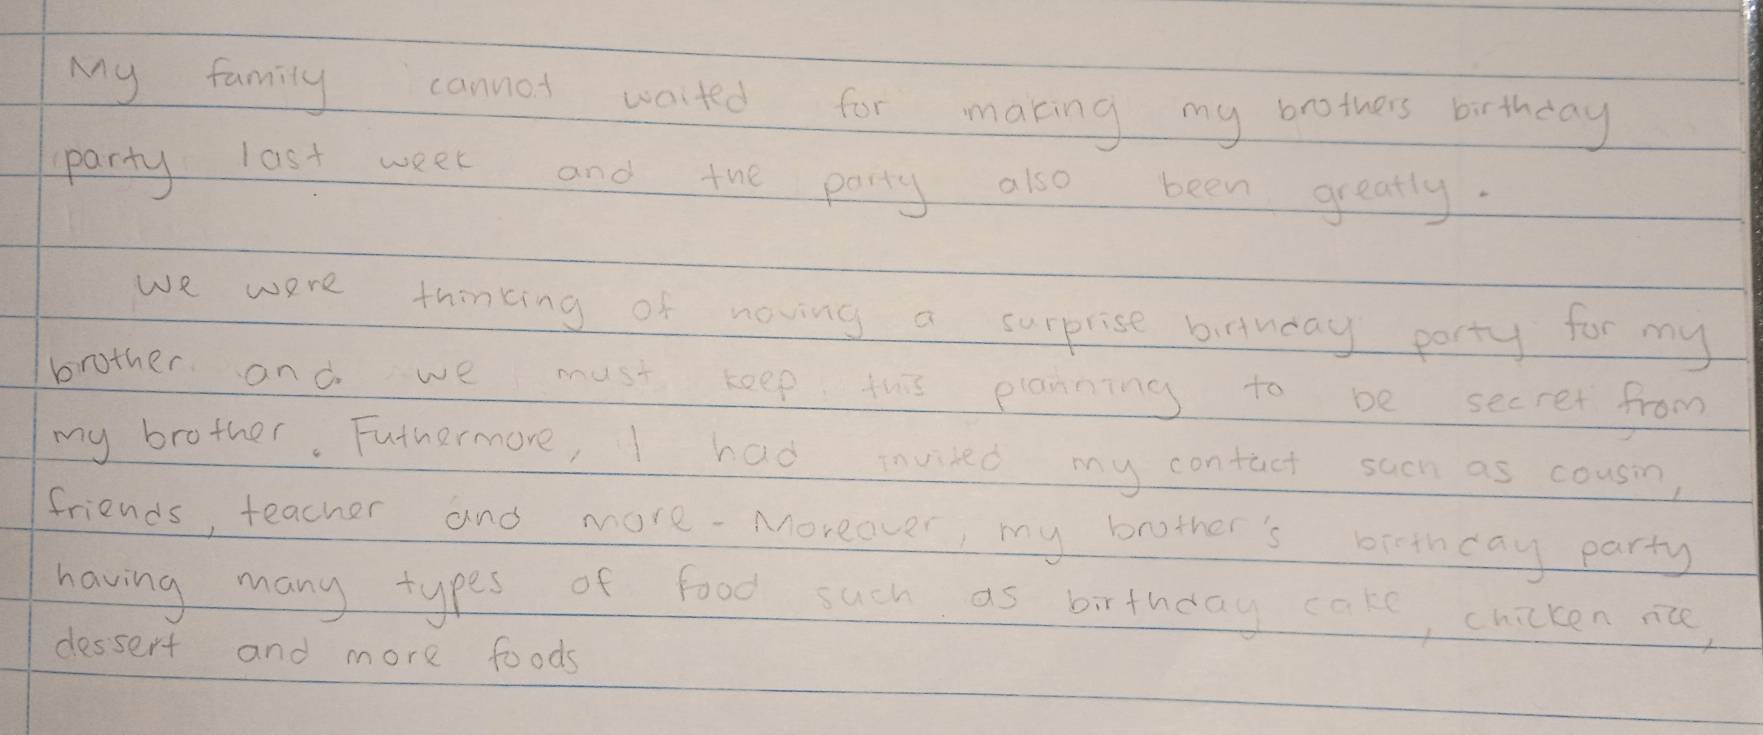 My family cannot waited for making my brothers birthday
party last week and the party also been greatly.
We were thinking of having a surprise birthday party for my
brother and we must keep this planning to be secret from
my brother. Futhermore, I had invited my contact such as cousin,
friends, teacher and more. Moreover, my brother's birthday party
having many types of food such as birthday cake, chicken rice,
dessert and more foods